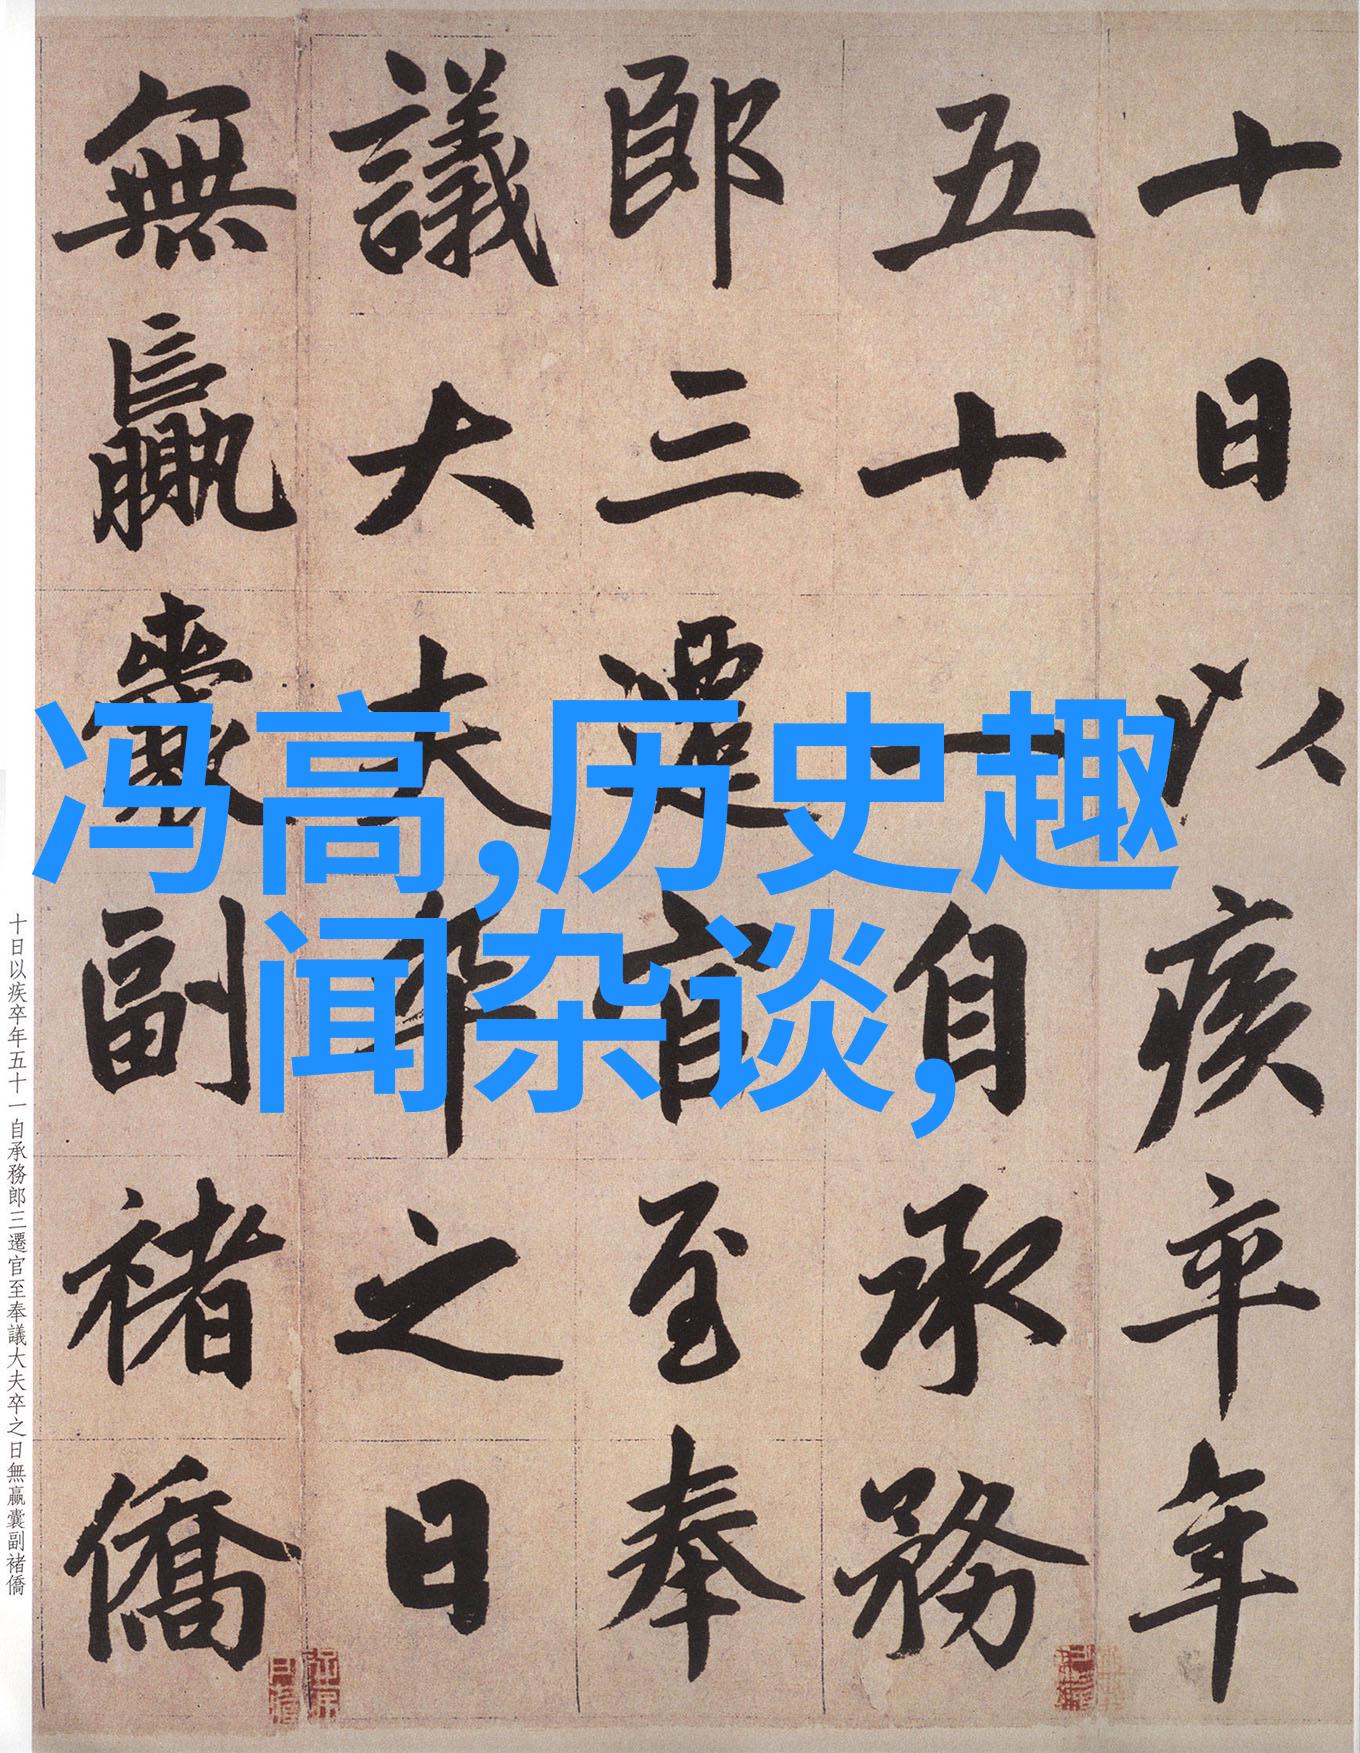 十日以疾卒年
五十一自承務
郎三遷官至奉
議大夫卒之日
無贏囊副褚僑
冯高,历史趣
闻杂谈,
十日以疾卒年五十一自承務郎三遷官至奉議大夫卒之日無贏囊副褚僑